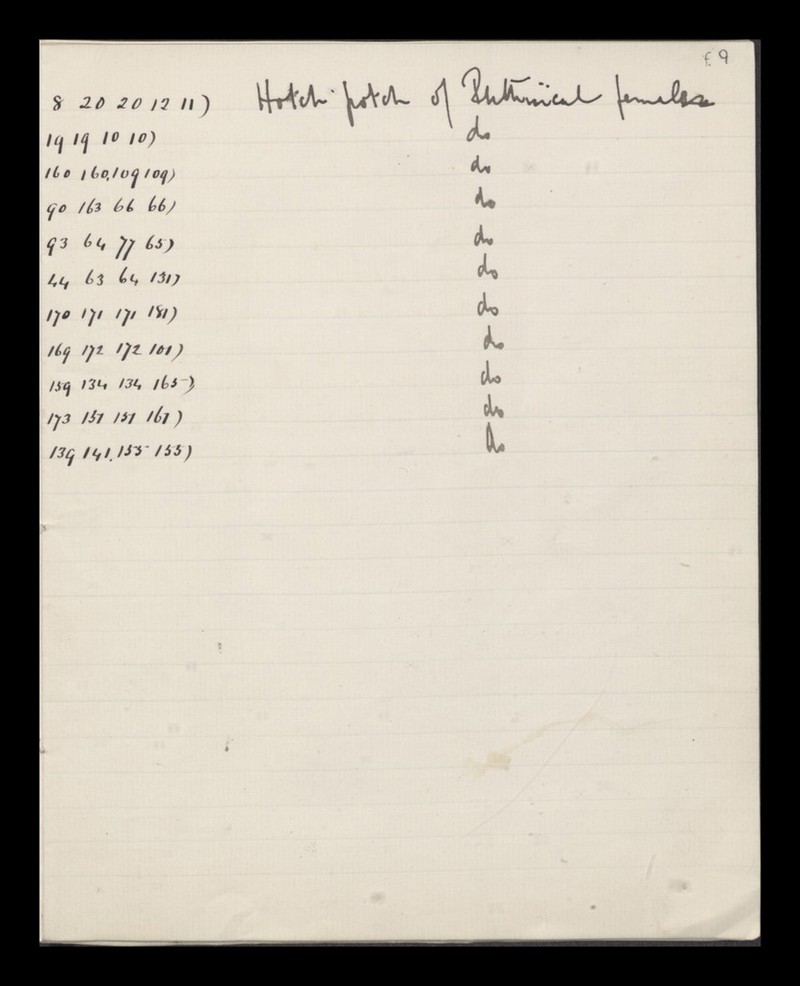 f. 9
8 20 20 12 11) Hotch-potch of Phthisical females
19 19 10 10) do
160 160.109 109) do
90 163 66 66) do
93 64 77 65) do
44 63 64 131) do
170 171 171 181) do
169 172 172 101) do
159 134 134 165) do
173 151 151 161) do
139 141.155 155) Do